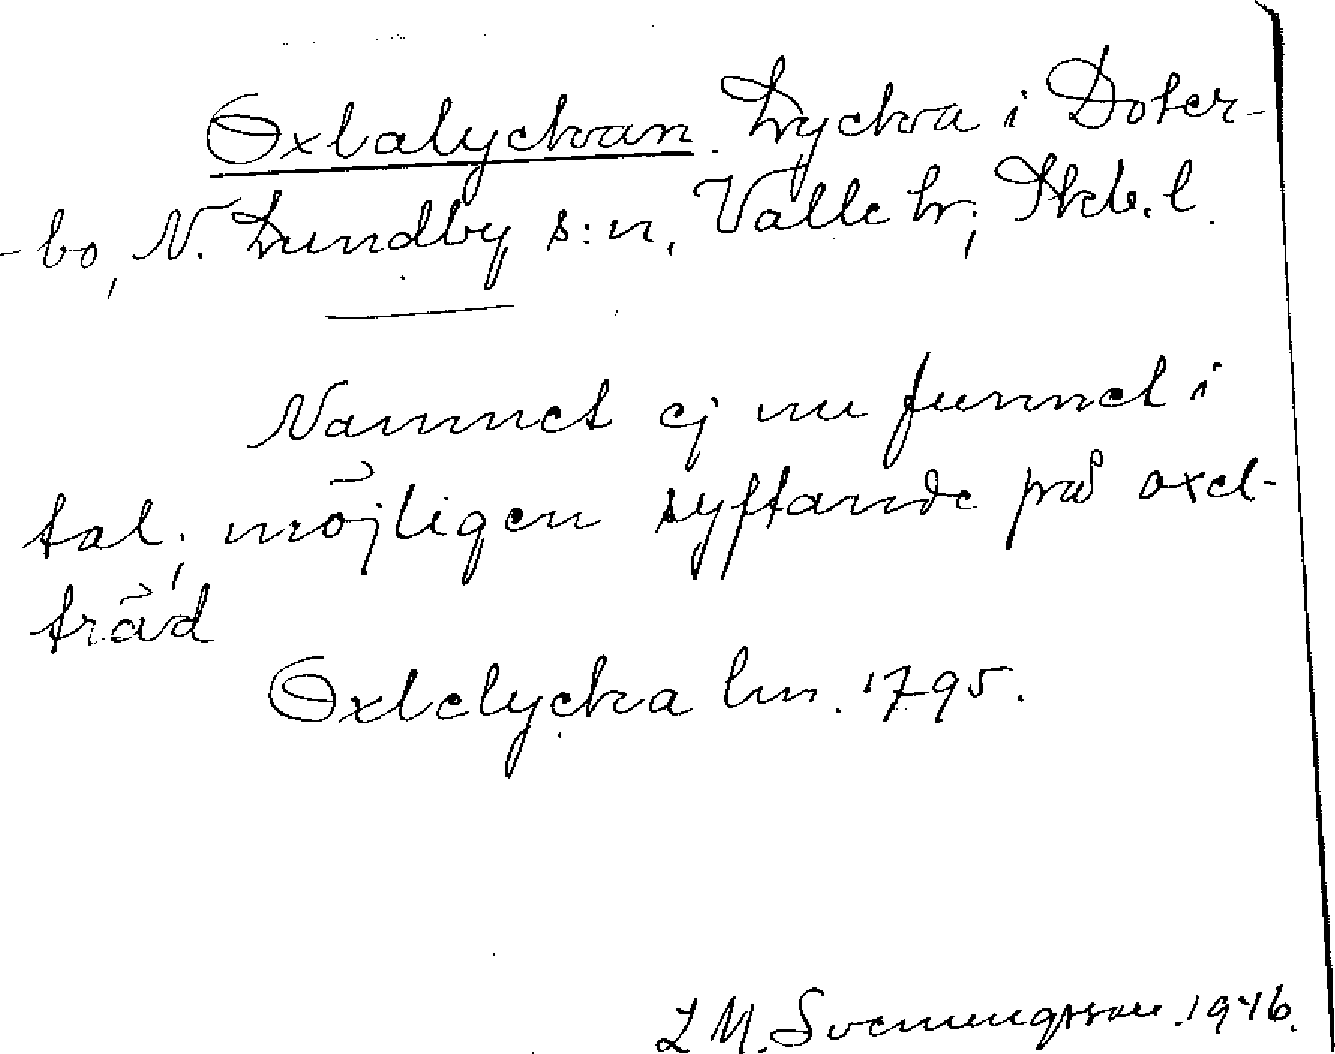 Oxlalyckan. Lycka i Doter-
-bo, N. Lundby s:n, Valle hr; Skb. l.
Namnet ej nu funnet i
tal; möjligen syftande på oxel-
träd
Oxlelycka lm. 1795.
L M. Svenungsson. 1946.